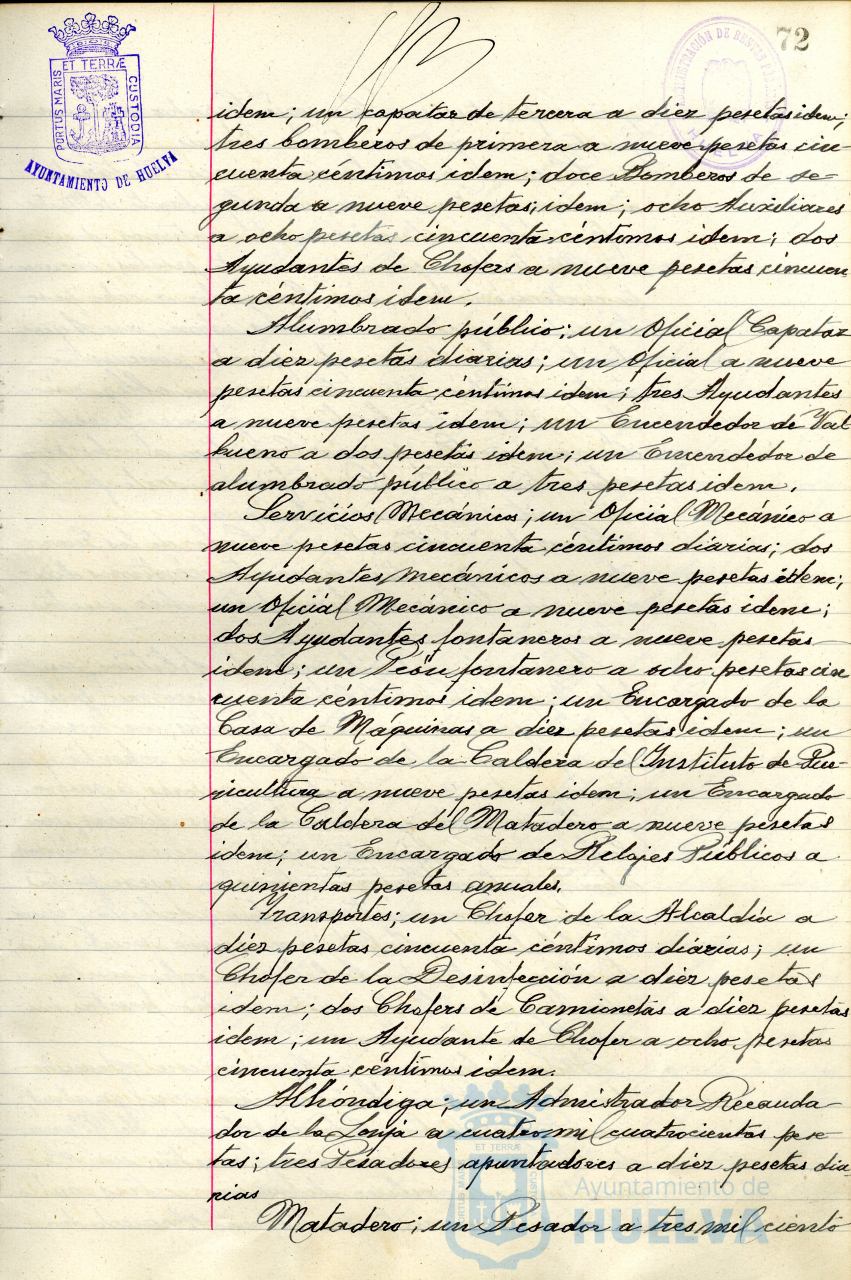 72
ET TERRÆ
PORTUS MARIS
CUSTODIA
AYUNTAMIENTO DE HUELVA
ADMINISTRACIÓN DE RENTAS
HUELVA
idem; un capataz de tercera a diez pesetas idem;
tres bomberos de primera a nueve pesetas cin-
cuenta céntimos idem; doce Bomberos de se-
gunda a nueve pesetas, idem; ocho Auxiliares
a ocho pesetas cincuenta céntimos idem; dos
Ayudantes de Chofers a nueve pesetas cincuen
ta céntimos idem.
Alumbrado público; un Oficial Capataz
a diez pesetas diarias; un Oficial a nueve
pesetas cincuenta céntimos idem; tres Ayudantes
a nueve pesetas idem; un Encendedor de Val-
bueno a dos pesetas idem; un Encendedor de
alumbrado público a tres pesetas idem.
Servicios Mecánicos; un Oficial Mecánico a
nueve pesetas cincuenta céntimos diarias; dos
Ayudantes mecánicos a nueve pesetas idem;
un Oficial Mecánico a nueve pesetas idem;
dos Ayudantes fontaneros a nueve pesetas
idem; un Peón fontanero a ocho pesetas cin
cuenta céntimos idem; un Encargado de la
Casa de Máquinas a diez pesetas idem; un
Encargado de la Caldera del Instituto de Pue-
ricultura a nueve pesetas idem; un Encargado
de la Caldera del Matadero a nueve pesetas
idem; un Encargado de Relojes Públicos a
quinientas pesetas anuales.
Transportes; un Chofer de la Alcaldía a
diez pesetas cincuenta céntimos diarias; un
Chofer de la Desinfección a diez pesetas
idem; dos Chofers de Camionetas a diez pesetas
idem; un Ayudante de Chofer a ocho pesetas
cincuenta céntimos idem.
Alhóndiga; un Admistrador Recauda-
dor de la Lonja a cuatro mil cuatrocientas pese
tas; tres Pesadores apuntadores a diez pesetas dia-
rias
Matadero; un Pesador a tres mil ciento
ET TERRÆ
Ayuntamiento de
HUELVA